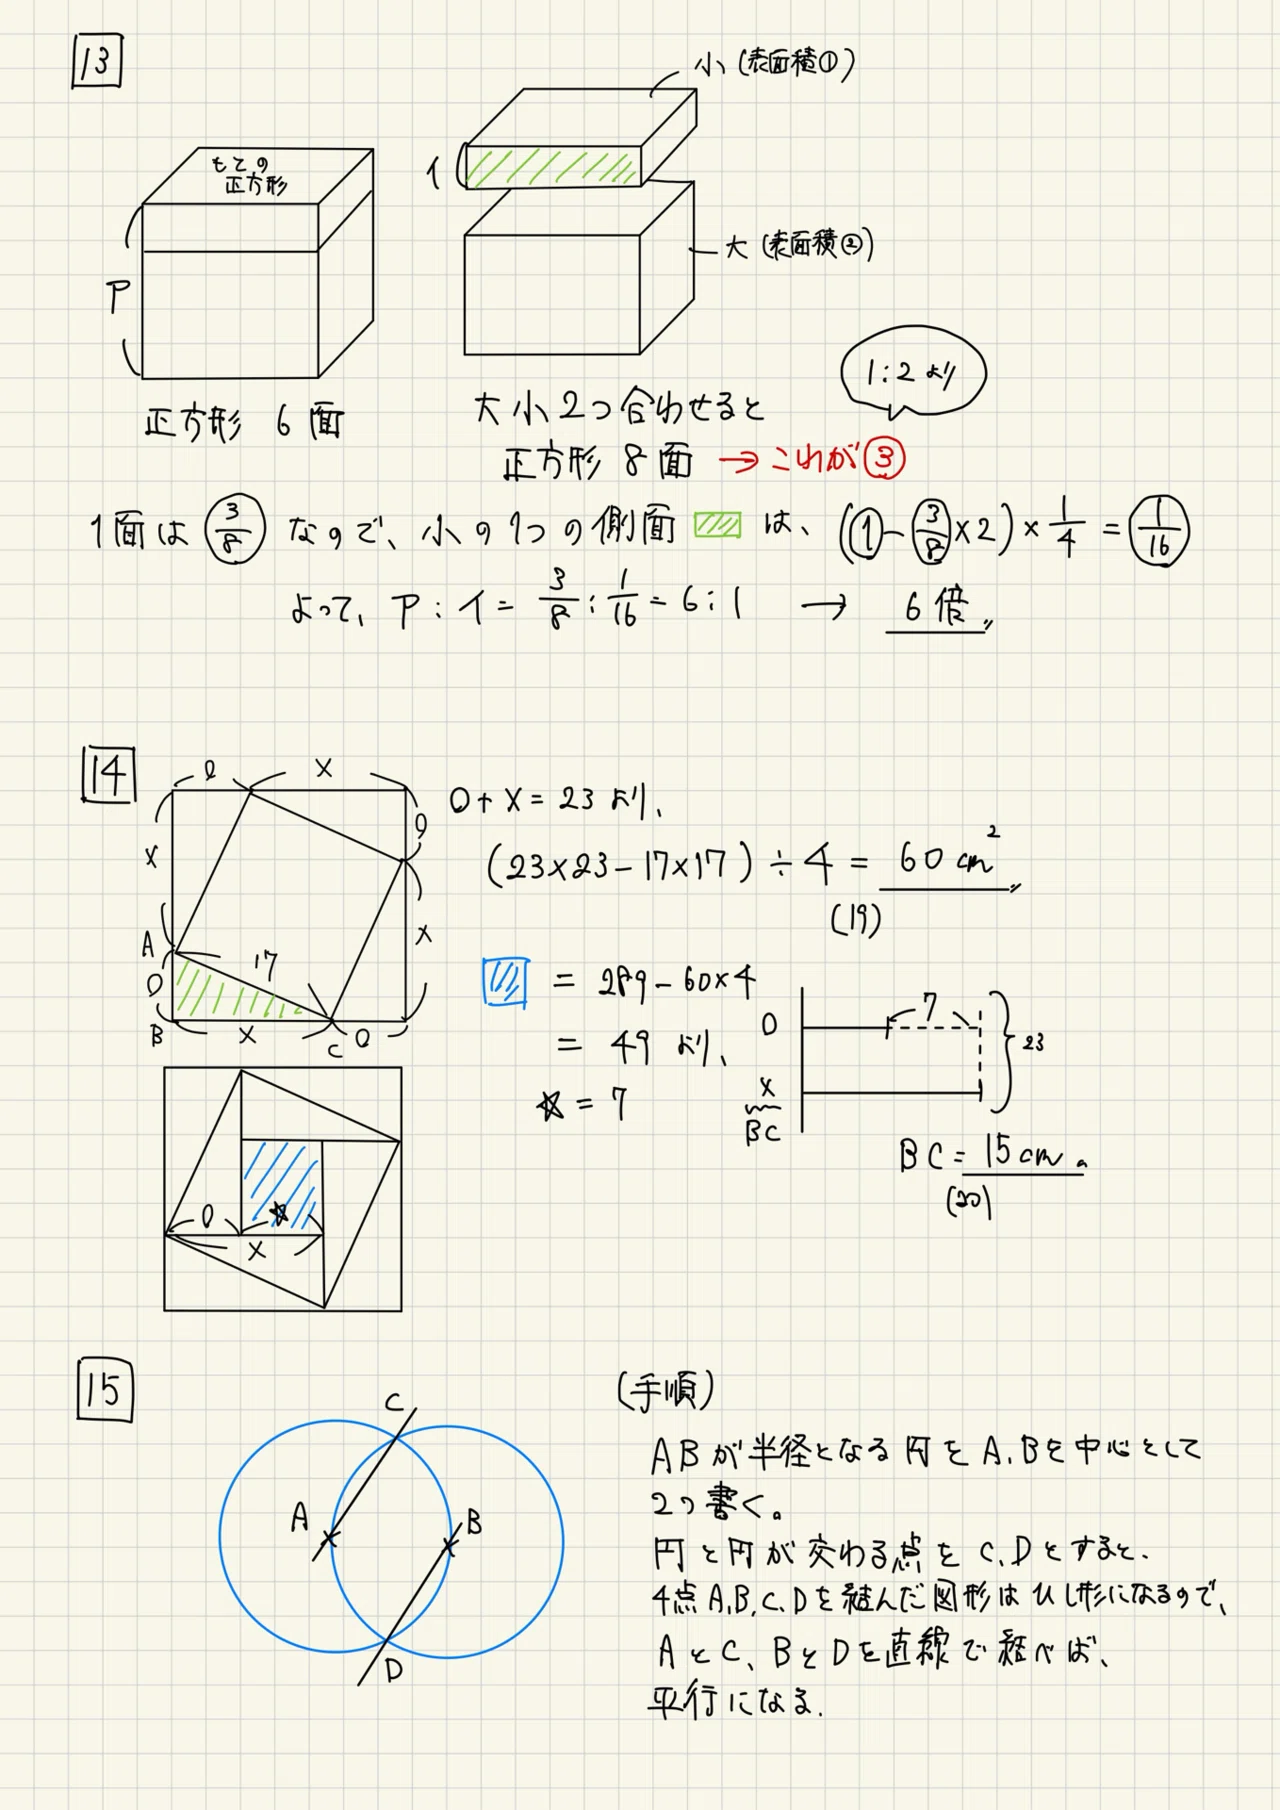 13
小(表面積①)
もとの
正方形
イ
大(表面積②)
ア
1:2より
正方形 6面
大小2つ合わせると
正方形 8面 → これが③
1面は 3/8 なので、小の1つの側面 は、(①-3/8×2)×1/4=1/16
よって、ア:イ=3/8:1/16=6:1 → 6倍
14
○ ×
○+×=23 より、
× ○
(23×23-17×17)÷4=60cm²
(19)
A 17 ×
○
B × C ○
=289-60×4
=49 より、
☆=7
○ 7
23
×
BC
BC=15cm。
(20)
○ ☆
×
15
(手順)
C
A B
D
ABが半径となる円をA、Bを中心として
2つ書く。
円と円が交わる点をC、Dとすると、
4点A、B、C、Dを結んだ図形はひし形になるので、
AとC、BとDを直線で結べば、
平行になる。